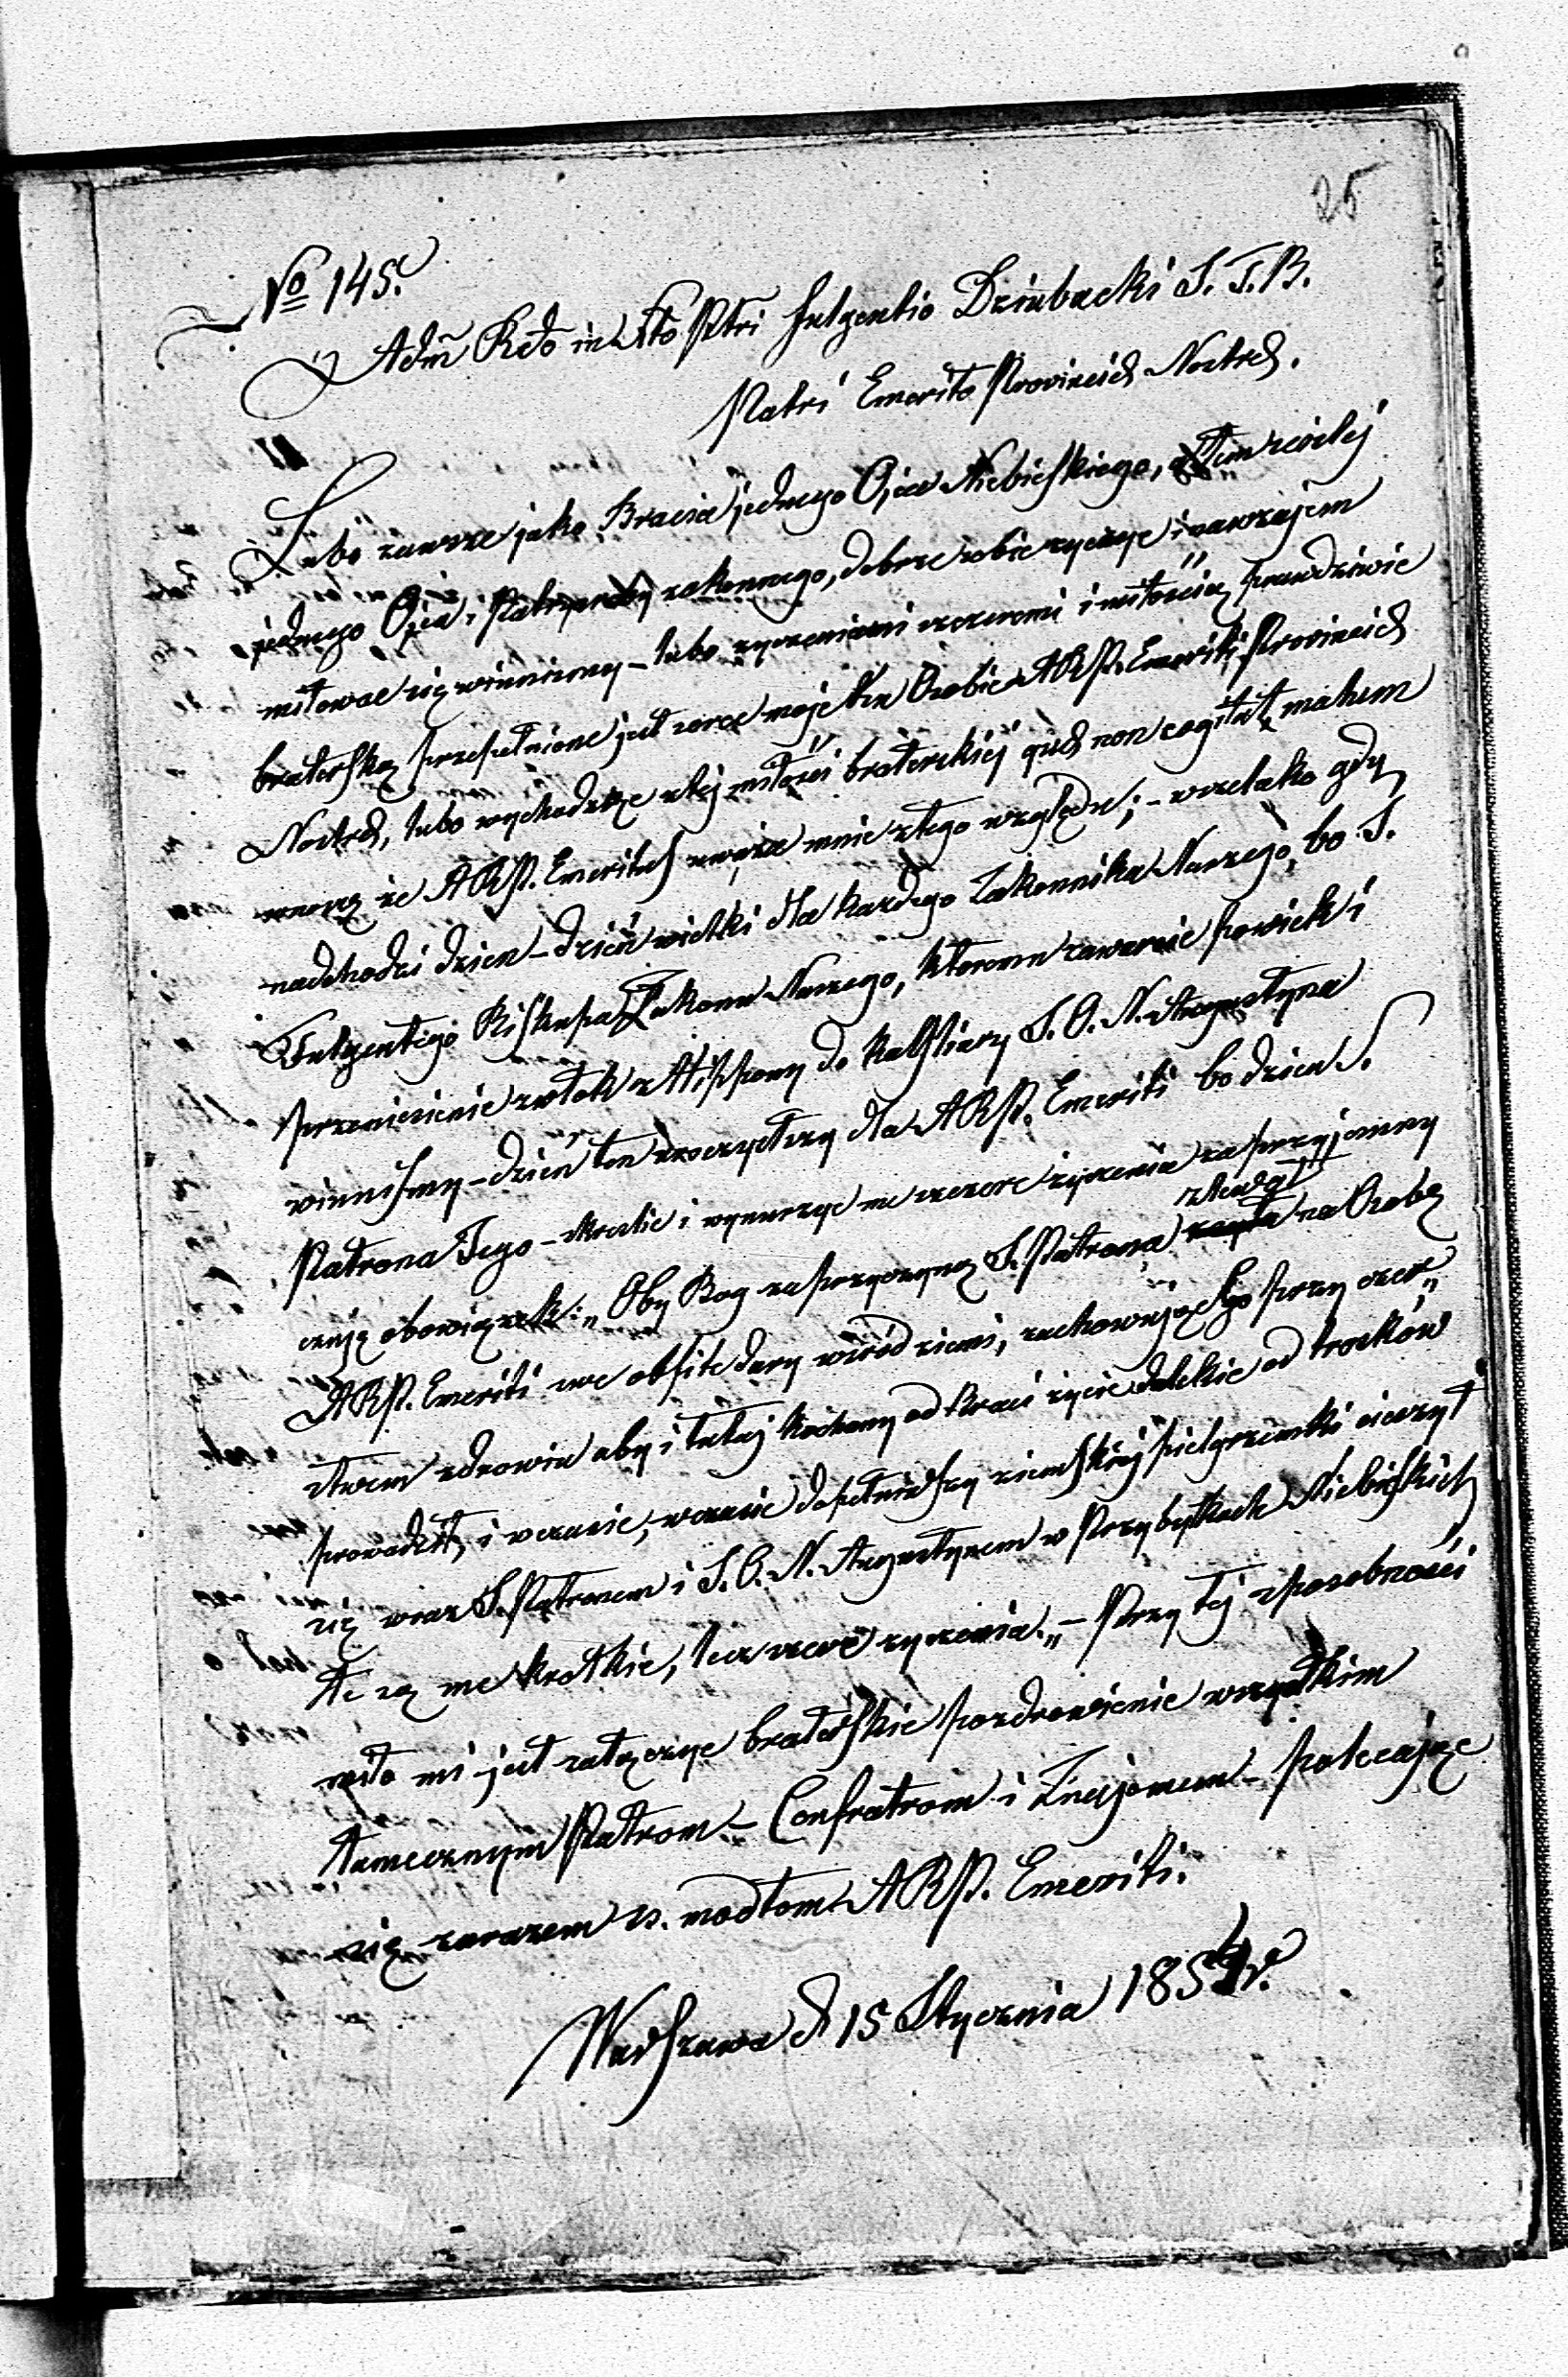 25
No 145.
Adm Rdo in Xto Ptri Fulgentio Dziubacki S. T. B.
Patri Emerito Provinciæ Nostræ.
Lubo zawsze jako Bracia jednego Ojca Niebieskiego, a tem ściślej
jednego Ojca i Patryarchy zakonnego, dobrze sobie życzyć i nawzajem
miłować się winniśmy – lubo życzeniami szczeremi i miłością prawdziwie
braterską przepełnione jest serce moje ku Osobie ARP. Emeriti Provinciæ
Nostræ, lubo wychodząc z tej miłości braterskiej quæ non cogitat malum
wnoszę że ARP. Emeritus uważa mnie z tego względu; – wszelako gdy
nadchodzi dzien – dzień wielki dla każdego Zakonnika Naszego, bo S.
Fulgentego Biskupa Zakonu Naszego, któremu zawarcie powiek i
przeniesienie zwłok z Hippony do Kalliary S. O. N. Augustyna
winniśmy – dzień ten uroczystszy dla ARP. Emeriti bo dzien S.
Patrona Jego – skreślić i wynurzyć me szczere życzenia za przyjemny
zlewał
czuję obowiązek: „Oby Bog za przyczyną S. Patrona na Osobę
ARP. Emeriti swe obfite dary wśród ziemi, zachowując Go przy czer„
stwem zdrowiu aby i tutaj kochany od Braci życie dalekie od trosków
prowadził, i w czasie, w czasie dopełniwszy ziemskiej pielgrzymki cieszył
się wraz S. Patronem i S. O. N. Augustynem w Przybytkach Niebieskich
Te są me krotkie, lecz szczere życzenia.„ – Przy tej sposobności
miło mi jest załączyć braterskie pozdrowienie wszystkim
tamecznym Patrom – Confratrom i Znajomem – polecając
się zarazem s. modłom ARP. Emeriti.
Warszawa d 15 Stycznia 185 r.